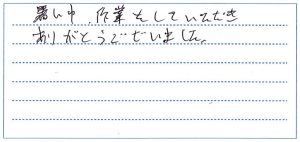 暑い中、作業をしていただき
ありがとうございました。